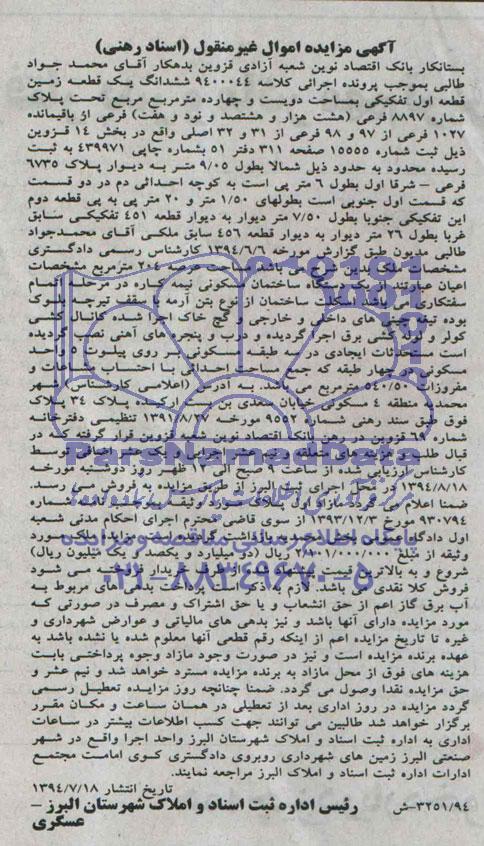 آگهی مزایده اموال غیرمنقول (اسناد رهنی)
بستانکار بانک اقتصاد نوین شعبه آزادی قزوین بدهکار آقای محمد جواد
طالبی بموجب پرونده اجرائی کلاسه ۹۴۰۰۰۴۴ ششدانگ یک قطعه زمین
قطعه اول تفکیکی بمساحت دویست و چهارده مترمربع مربع تحت پلاک
شماره ۸۸۹۷ فرعی (هشت هزار و هشتصد و نود و هفت) فرعی از باقیمانده
۱۰۲۷ فرعی از ۹۷ و ۹۸ فرعی از ۳۱ و ۳۲ اصلی واقع در بخش ۱۴ قزوین
ذیل ثبت شماره ۱۵۵۵۵ صفحه ۳۱۱ دفتر ۵۱ بشماره چاپی ۴۳۹۹۷۱ به ثبت
رسیده محدود به حدود ذیل شمالا بطول ۹/۰۵ متر به دیوار پلاک ۶۷۳۵
فرعی – شرقا اول بطول ۶ متر پی است به کوچه احداثی دم در دو قسمت
که قسمت اول جنوبی است بطولهای ۱/۵۰ متر و ۲۰ متر پی به پی قطعه دوم
این تفکیکی جنوبا بطول ۷/۵۰ متر دیوار به دیوار قطعه ۴۵۱ تفکیکی سابق
غربا بطول ۲۶ متر دیوار به دیوار قطعه ۴۵۶ سابق ملکی آقای محمدجواد
طالبی مدیون طبق گزارش مورخه ۱۳۹۴/۶/۶ کارشناس رسمی دادگستری
مشخصات ملک بدین شرح می باشد مساحت عرصه مترمربع مشخصات
اعیان عبارتند از یک دستگاه ساختمان مسکونی نیمه کاره در مرحله اتمام
سفتکاری می باشد اسکلت ساختمان از نوع بتن آرمه با سقف تیرچه بلوک
بوده تیغه چینی های داخلی و خارجی و گچ خاک اجرا شده کانال کشی
کولر و لوله کشی برق اجرا گردیده و درب و پنجره های آهنی نصب گردیده
است مستحدثات ایجادی در سه طبقه مسکونی بر روی پیلوت ۵ واحد
مسکونی در چهار طبقه که جمع مساحت احداثی با احتساب مشاعات و
مفروزات ۵۴۰/۵۰ مترمربع می باشد. به آدرس (اعلامی کارشناس) شهر
محمدیه منطقه ۴ مسکونی خیابان سعدی بن بست پلاک ۳۴ پلاک
فوق طبق سند رهنی شماره ۹۵۵۲ مورخه ۱۳۹۱/۸/۲۷ تنظیمی دفترخانه
شماره ۶۹ قزوین در رهن بانک اقتصاد نوین شعبه قزوین قرار گرفته که در
قبال طلب و هزینه های متعلقه و نیم عشر اجرایی و یک عشر اضافی توسط
کارشناس ارزیابی شده از ساعت ۹ صبح الی ۱۲ ظهر روز دوشنبه مورخه
۱۳۹۴/۸/۱۸ در محل اجرای ثبت البرز از طریق مزایده به فروش می رسد.
ضمنا اعلام می گردد مازاد اول پلاک مورد وثیقه بموجب نامه شماره
۹۳۰۷۹۴ مورخ ۱۳۹۳/۱۲/۳ از سوی قاضی محترم اجرای احکام مدنی شعبه
اول دادگاه عمومی بخش محمدیه بازداشت گردیده قیمت مزایده ملک مورد
وثیقه از مبلغ ۲/۱۰۱/۰۰۰/۰۰۰ ریال (دو میلیارد و یکصد و یک میلیون ریال)
شروع و به بالاترین قیمت پیشنهاد شده از طرف خریدار فروخته می شود
فروش کلا نقدی می باشد. لازم به ذکر است پرداخت بدهی های مربوط به
آب برق گاز اعم از حق انشعاب و یا حق اشتراک و مصرف در صورتی که
مورد مزایده دارای آنها باشد و نیز بدهی های مالیاتی و عوارض شهرداری و
غیره تا تاریخ مزایده اعم از اینکه رقم قطعی آنها معلوم شده یا نشده باشد به
عهده برنده مزایده است و نیز در صورت وجود مازاد وجوه پرداختی بابت
هزینه های فوق از محل مازاد به برنده مزایده مسترد خواهد شد و نیم عشر و
حق مزایده نقدا وصول می گردد. ضمنا چنانچه روز مزایده تعطیل رسمی
گردد مزایده در روز اداری بعد از تعطیلی در همان ساعت و مکان مقرر
برگزار خواهد شد طالبین می توانند جهت کسب اطلاعات بیشتر در ساعات
اداری به اداره ثبت اسناد و املاک شهرستان البرز واحد اجرا واقع در شهر
صنعتی البرز زمین های شهرداری روبروی دادگستری کوی امامت مجتمع
ادارات اداره ثبت اسناد و املاک البرز مراجعه نمایند.
تاریخ انتشار ۱۳۹۴/۷/۱۸
۳۲۵۱/۹۴–ش رئیس اداره ثبت اسناد و املاک شهرستان البرز –
عسگری
ParsNamadData
۰۲۱-۸۸۳۴۹۶۷۰-۵